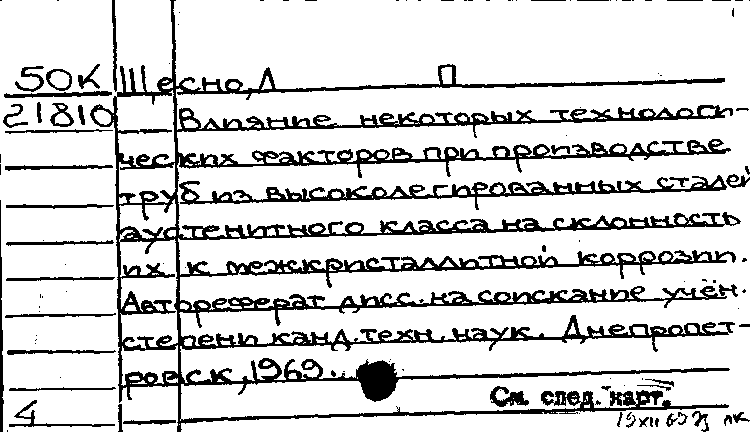 50К Щесно, Л П
21810 Влияние некоторых технологи-
ческих факторов при производстве
труб из высоколегированных сталей
аустенитного класса на склонность
их к межкристаллитной коррозии.
Автореферат дисс. на соискание учён.
степени канд. техн. наук. Днепропет-
ровск, 1969.
См. след. карт.
4